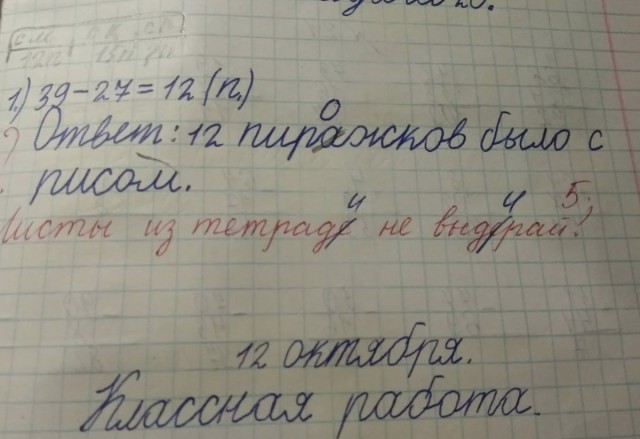 1.) 39-27=12 (п.)
О
Ответ: 12 пиражков было с
рисом.
и и 5;
Листы из тетраде не выдерай!
12 октября.
Классная работа.